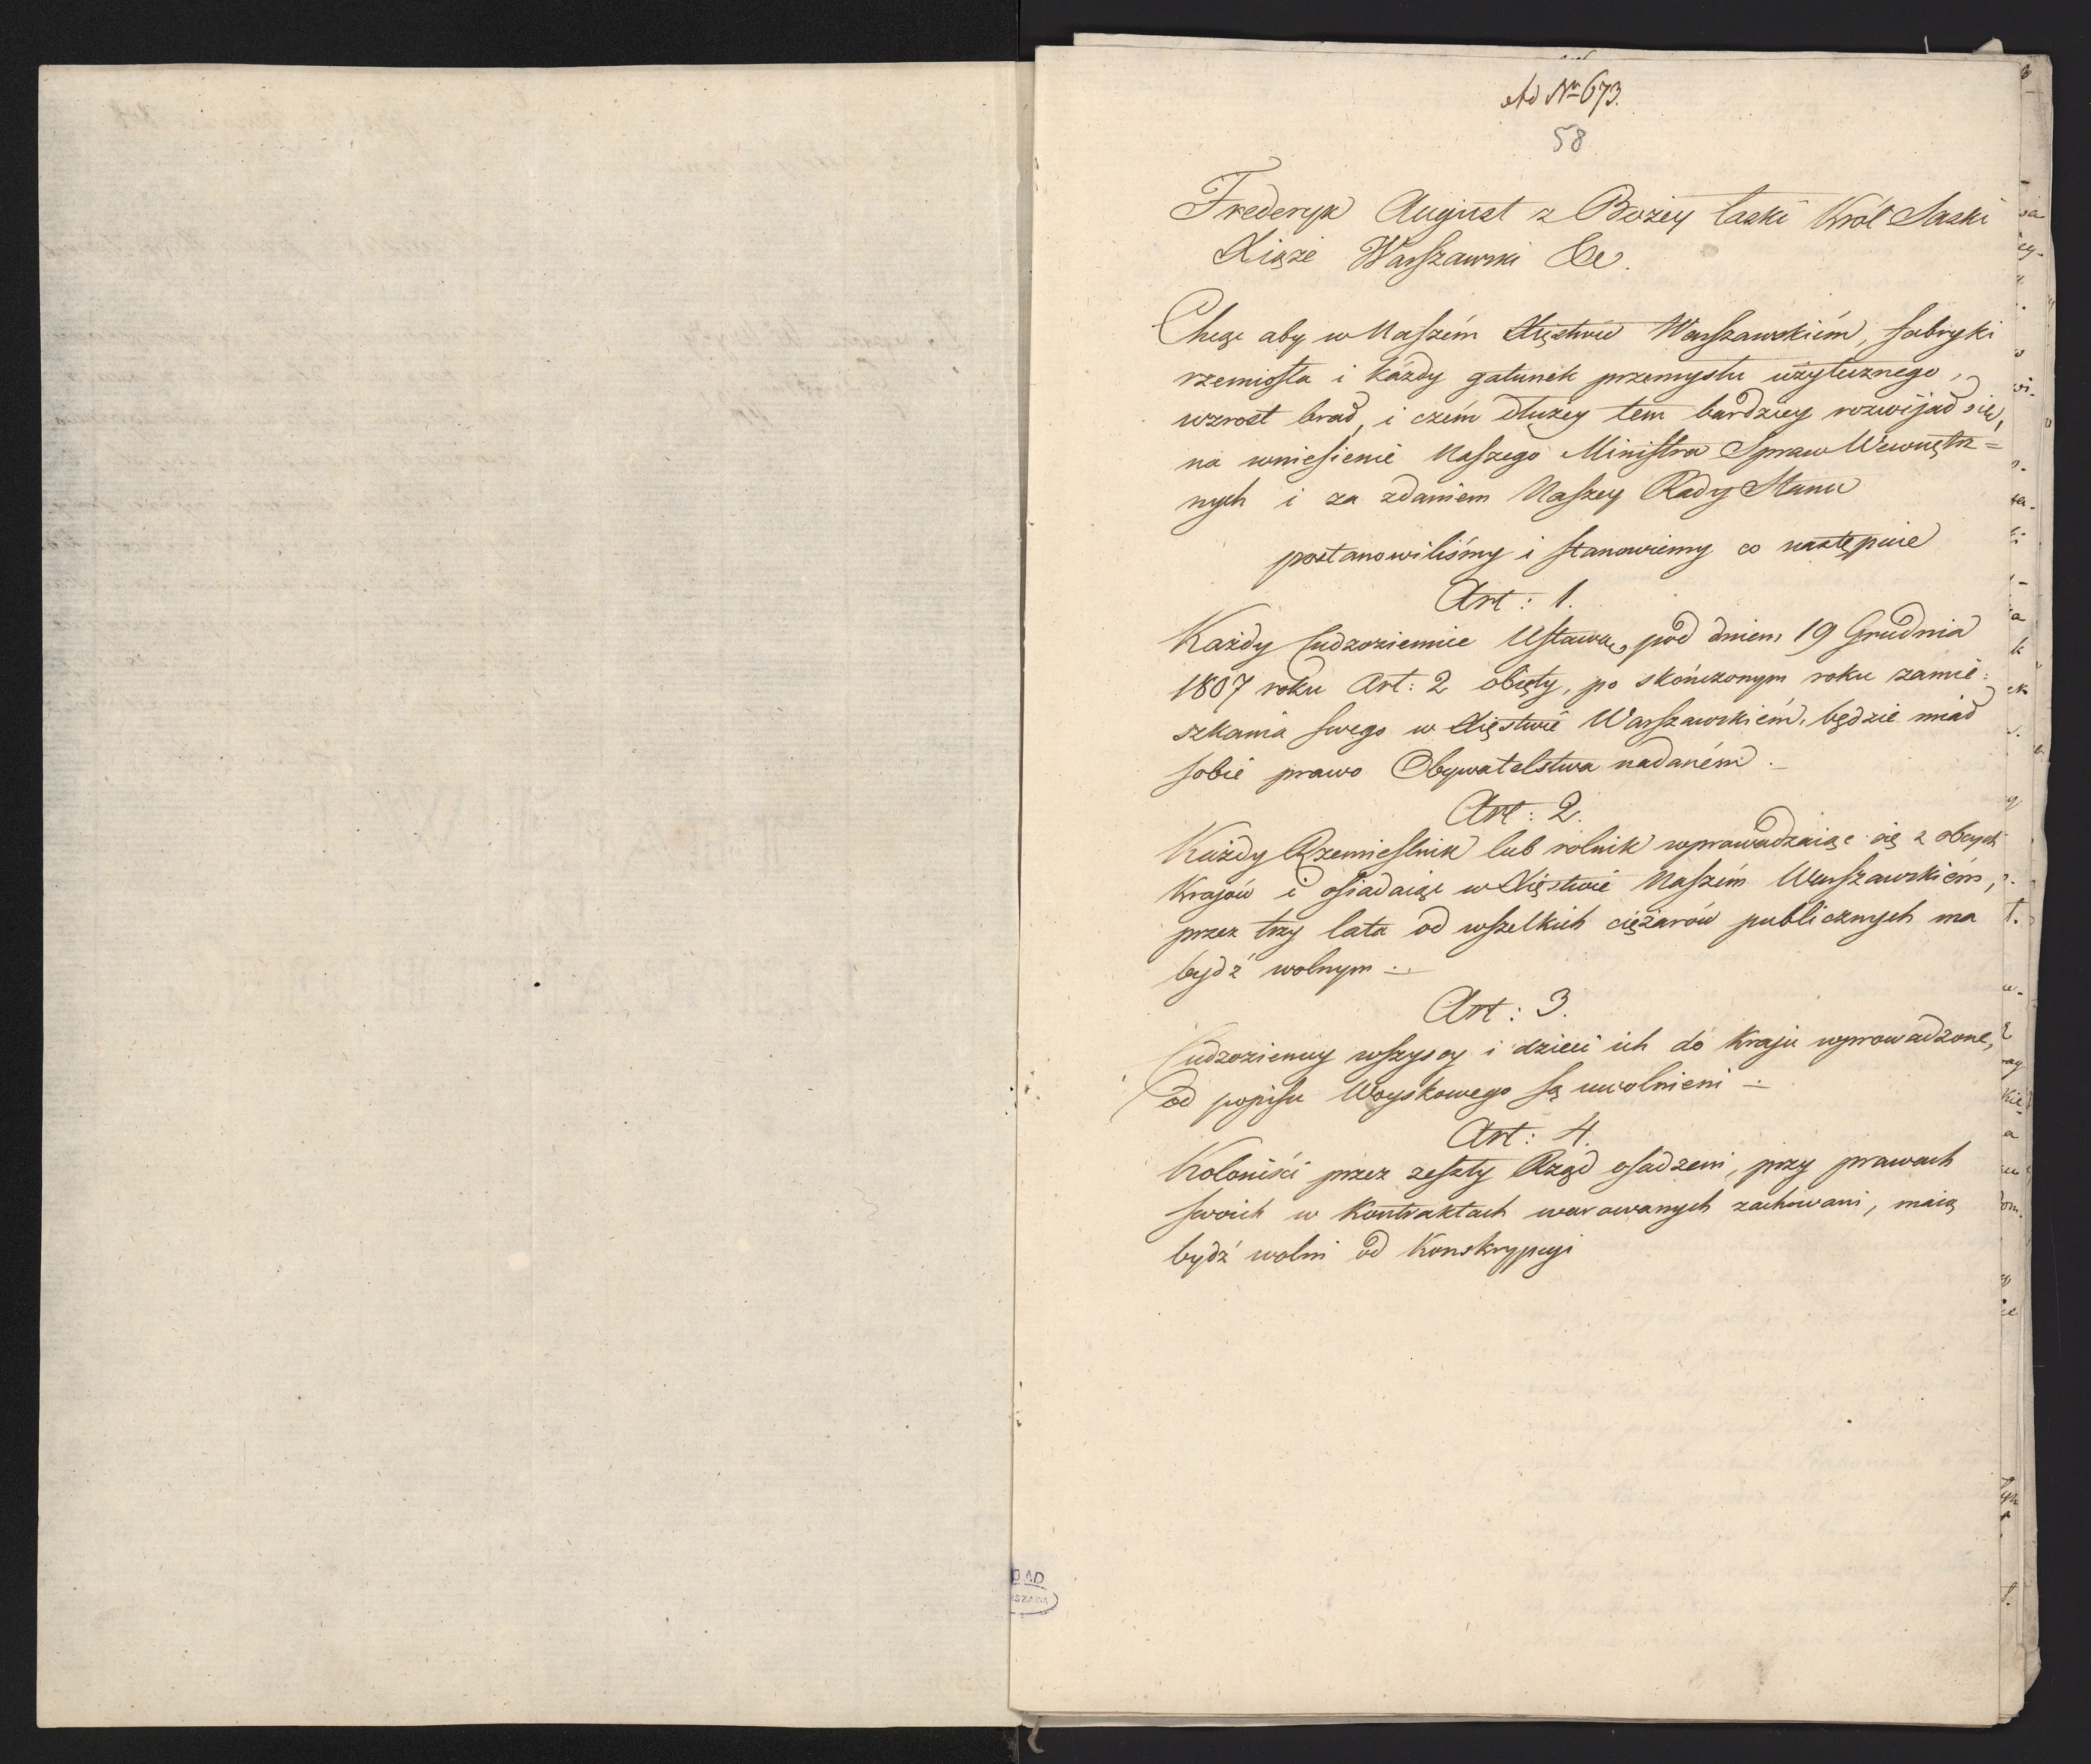 Ad Nr 673.
58
Frederyk August z Bożey łaski Król Saski
Xiąże Warszawski &c.
Chcąc aby w Naszém Xięstwie Warszawskiém, fabryki
rzemiosła i każdy gatunek przemysłu użytecznego,
wzrost brał, i czém dłużey tem bardziey rozwijał się,
na wniesienie Naszego Ministra Spraw Wewnętrz=
nych i za zdaniem Naszey Rady Stanu
postanowiliśmy i stanowiemy co następuie
Art: 1.
Każdy Cudzoziemiec Ustawą, pod dniem 19 Grudnia
1807 roku Art: 2 obięty, po skończonym roku zamie=
szkania swego w Xięstwie Warszawskiém, będzie miał
sobie prawo Obywatelstwa nadaném.
Art: 2.
Każdy Rzemieślnik lub rolnik wprawadzaiąc się z obcych
Krajów i osiadaiąc w Xięstwie Naszém Warszawskiém,
przez trzy lata od wszelkich ciężarów publicznych ma
bydź wolnym.
Art: 3.
Cudzoziemcy wszyscy i dzieci ich do Kraju wprowadzone,
od popisu Woyskowego są uwolnieni
Art: 4.
Koloniści przez zeszły Rząd osadzeni, przy prawach
swoich w Kontraktach warowanych zachowani, maią
bydź wolni od Konskrypcyi